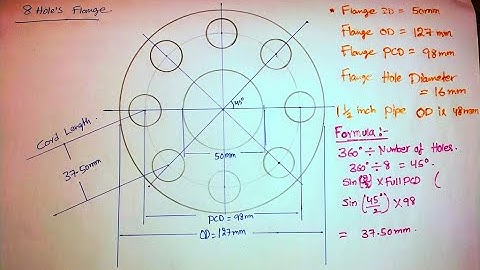 8 Hole's Flange.
Cord Length
37.50mm
45°
50mm
PCD = 98mm
OD = 127mm
* Flange ID = 50mm
Flange OD = 127mm
Flange PCD = 98mm
Flange Hole Diameter
= 16mm
1 1/2 inch pipe OD is 48mm
Formula:-
360° ÷ Number of Holes.
360° ÷ 8 = 45°.
Sin(θ/2) × Full PCD (
Sin(45°/2) × 98
= 37.50mm.